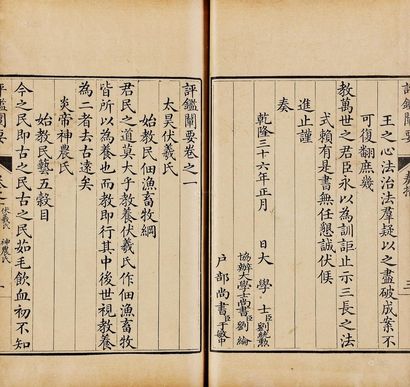 王之心法治法羣疑以之盡破成案不
可復翻庶幾
教萬世之君臣永以為訓詎止示三長之法
式賴有是書無任懇誠伏候
進止謹
奏
乾隆三十六年正月 日大學士臣劉統勲
協辦大學士尚書臣劉綸
戶部尚書臣于敏中
評鑑闡要
評鑑闡要卷之一
太昊伏羲氏
始教民佃漁畜牧綱
君民之道莫大乎教養伏羲氏作佃漁畜牧
皆所以為養也而教即行其中後世視教養
為二者去古遠矣
炎帝神農氏
始教民藝五穀目
今之民即古之民古之民茹毛飲血初不知
評鑑闡要
卷之一
伏羲氏 神農氏
一